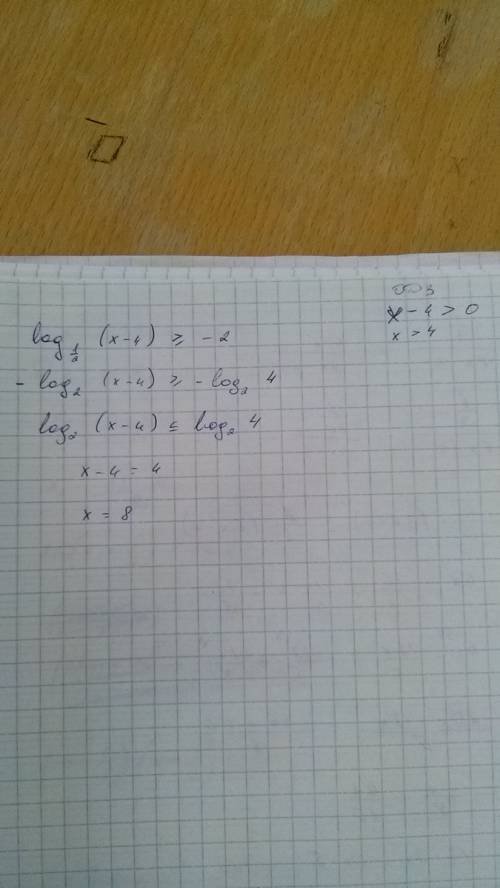 ОДЗ
x - 4 > 0
x > 4
log_{1/2} (x-4) ≥ -2
- log_2 (x-4) ≥ - log_2 4
log_2 (x-4) ≤ log_2 4
x - 4 = 4
x = 8